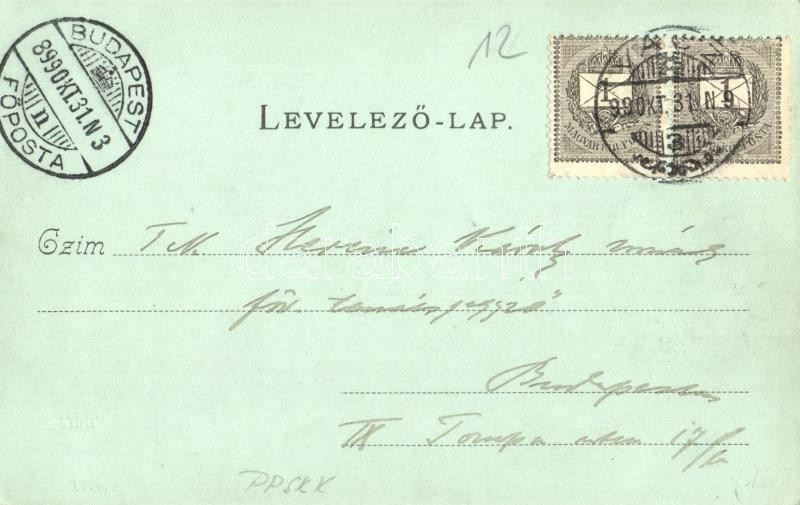 12
BUDAPEST
899 OKT. 31. N 3
n
FŐPOSTA
LEVELEZŐ-LAP.
1 1
MAGYAR KIR. POSTA
99 OKT. 31. N 9
Czim T. N. Károly
főv. tanácsjegyző
darabanth
Budapesten
IX Tompa utca 17/
PPSKK